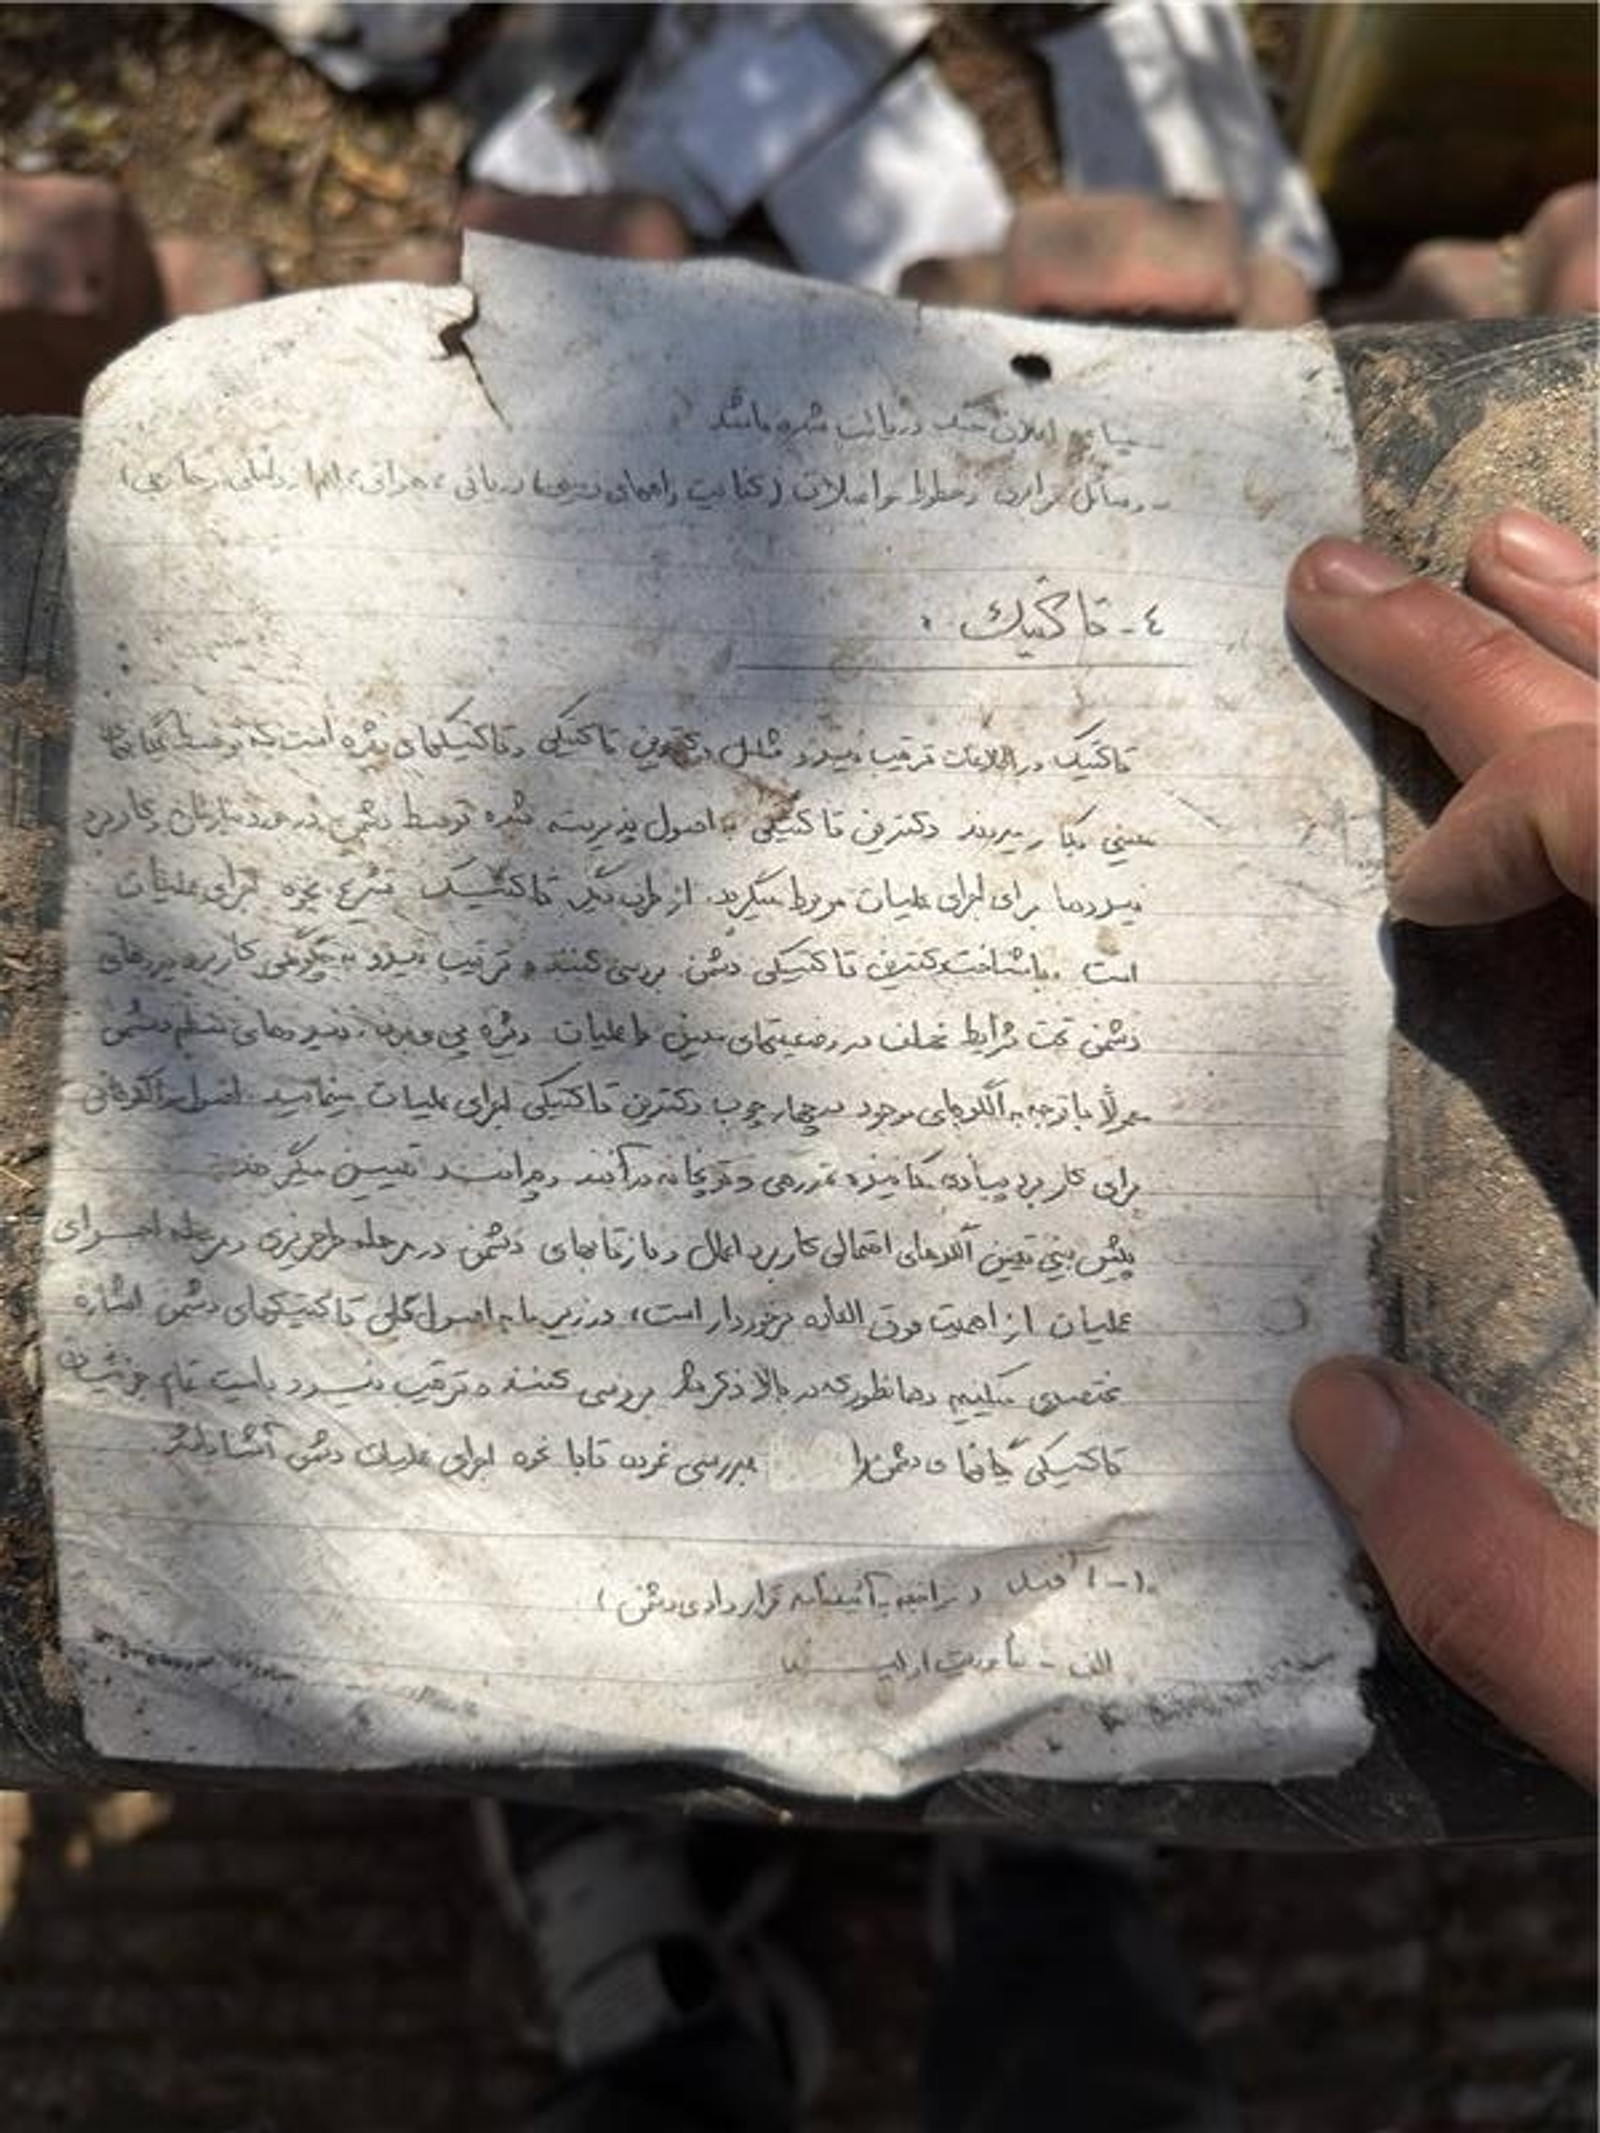 شده باشند
وسائل و خطوط مواصلاتی ( زمینی، دریائی، هوائی، داخلی و خارجی)
٤- تاکتیک :
تاکتیک در اطلاعات ترتیب نیرو شامل دکترین تاکتیکی و تاکتیکهای ویژه است که توسط یگانهای
معینی بکار میروند دکترین تاکتیکی به اصول پذیرفته شده توسط دشمن در مورد سازمان و کاربرد
نیروها برای اجرای عملیات مربوط میگردد. از طرف دیگر تاکتیک نحوه اجرای عملیات
است . با شناخت دکترین تاکتیکی دشمن بررسی کننده ترتیب نیرو به چگونگی کاربرد نیروهای
دشمن تحت شرایط مختلف در وضعیتهای معین یا عملیات ویژه پی میبرد. نیروهای منظم دشمن
معمولاً با توجه به الگوهای موجود در چهار چوب دکترین تاکتیکی اجرای عملیات مینمایند. اصول و الگوهائی
برای کاربرد پیاده مکانیزه زرهی و توپخانه در آفند و پدافند تعیین میگردند
پیش بینی تعیین الگوهای احتمالی کاربرد اعمال و بازتابهای دشمن در مرحله طرحریزی و مرحله اجرای
عملیات از اهمیت فوق العاده برخوردار است، در زیر ما به اصول کلی تاکتیکهای دشمن اشاره
مختصری میکنیم و همانطور که در بالا ذکر شد بررسی کننده ترتیب نیرو بایست تمام جزئیات
تاکتیکی یگانهای دشمن را بررسی نموده تا با نحوه اجرای عملیات دشمن آشنا باشد.
مراجعه به آئیننامه قراردادی دشمن )
الف - مأموریت